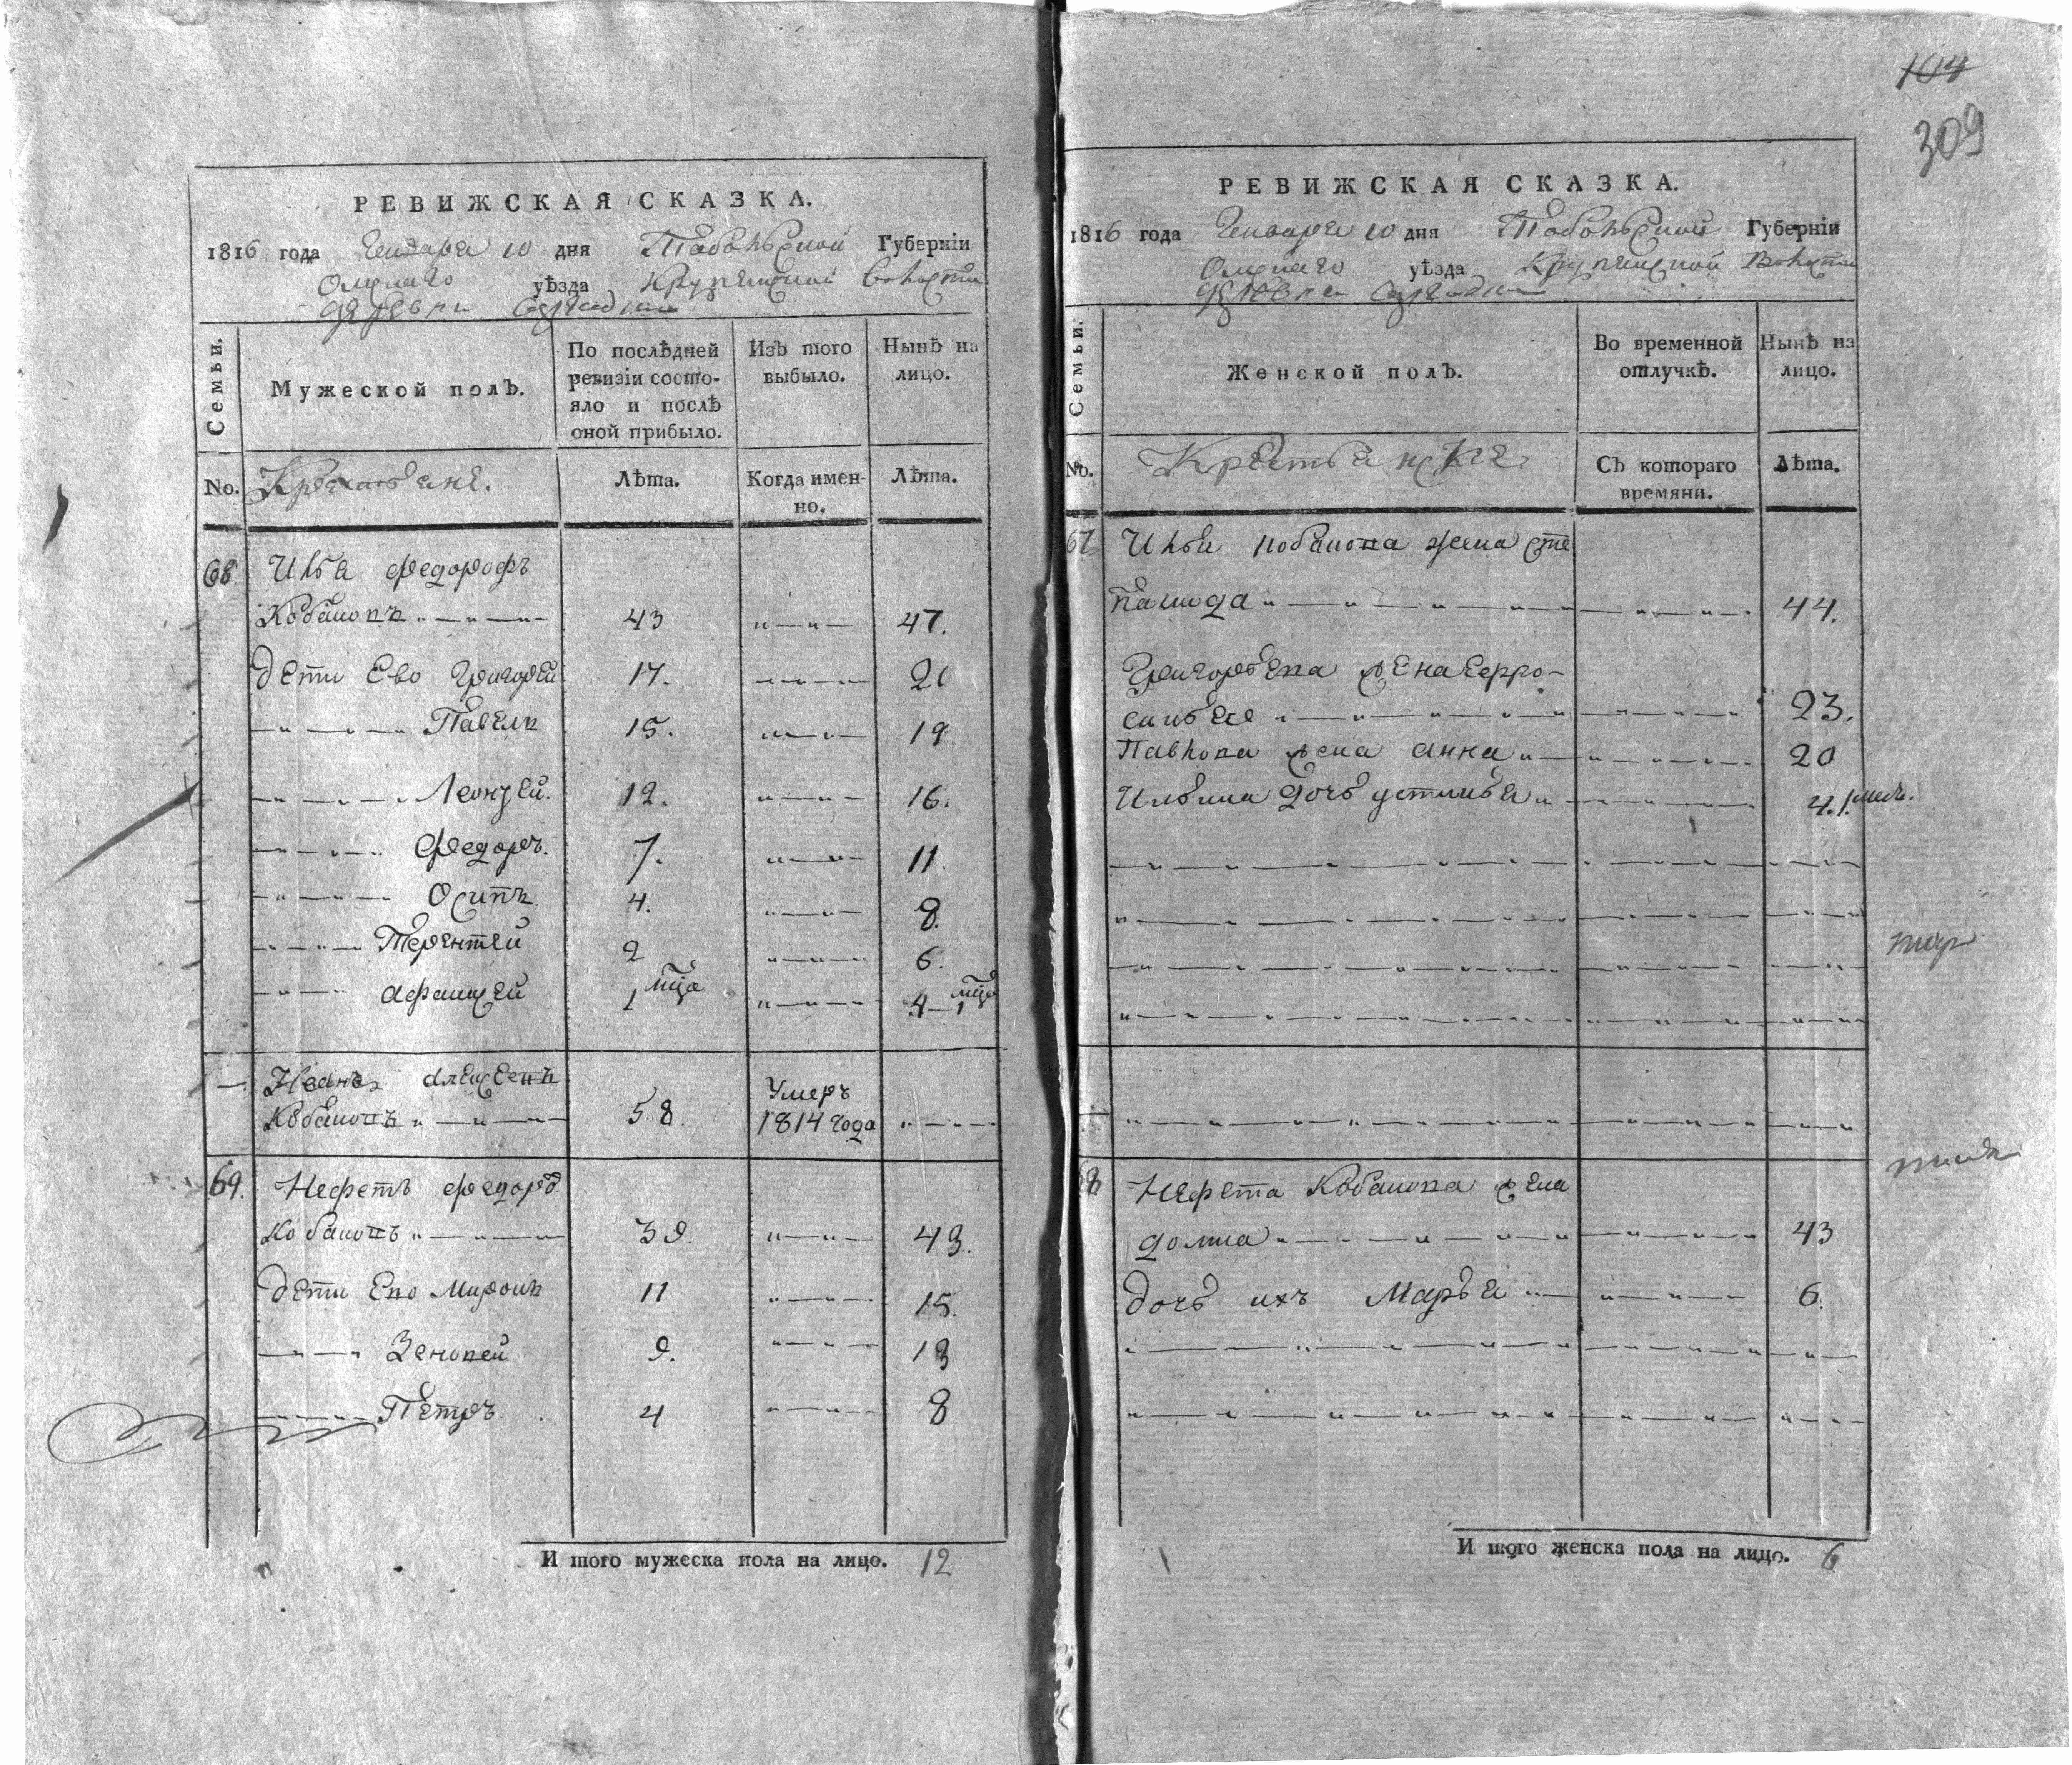 104
309
РЕВИЖСКАЯ СКАЗКА.
1816 года Генваря 10 дня Тобольской Губерніи
Омскаго уѣзда Крупенской волости
деревни
Семьи.
Мужеской полъ.
По послѣдней ревизіи состо-
яло и послѣ
оной прибыло.
Изъ того
выбыло.
Нынѣ на
лицо.
No. Крестьяне.
Лѣта.
Когда имен-
но.
Лѣта.
68 Илья Федорофъ
Кабановъ 43 47.
Дети Ево Григорей 17. 21
Павелъ 15. 19
Леонтей. 12. 16.
Федоръ. 7. 11.
Осипъ 4. 8.
Терентей 2 6.
Афанасей 1 мца 4-1 мца
Иванъ Алексеевъ
Кабановъ 58. Умеръ
1814 года
69. Нефетъ Федоров
Кабановъ 39. 43.
Дети Ево Миронъ 11 15.
Зеновей 9. 13
Петръ 4 8
И того мужеска пола на лицо. 12
РЕВИЖСКАЯ СКАЗКА.
1816 года Генваря 10 дня Тобольской Губерніи
Омскаго уѣзда Крупенской Волости
деревни
Семьи.
Женской полъ.
Во временной
отлучкѣ.
Нынѣ на
лицо.
No. Крестьянские
Съ котораго
времяни.
Лѣта.
67 Ильи Кабанова жена сте
панида 44.
Григорьева жена Ефро-
синья 23.
Павлова жена Анна 20
Ильина дочь устинья 4.1. меся.
68 Нефета Кабанова жена
домна 43
дочь ихъ Марья 6.
И того женска пола на лицо. 6